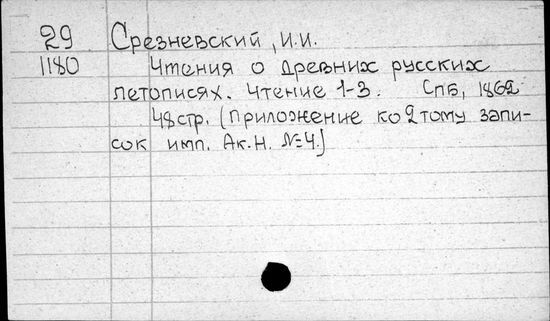 29 Срезневский, И.И.
1180 Чтения о древних русских
летописях. Чтение 1-3. СПБ, 1862
48стр. (Приложение ко 2 тому запи-
сок имп. Ак.Н. №4.)